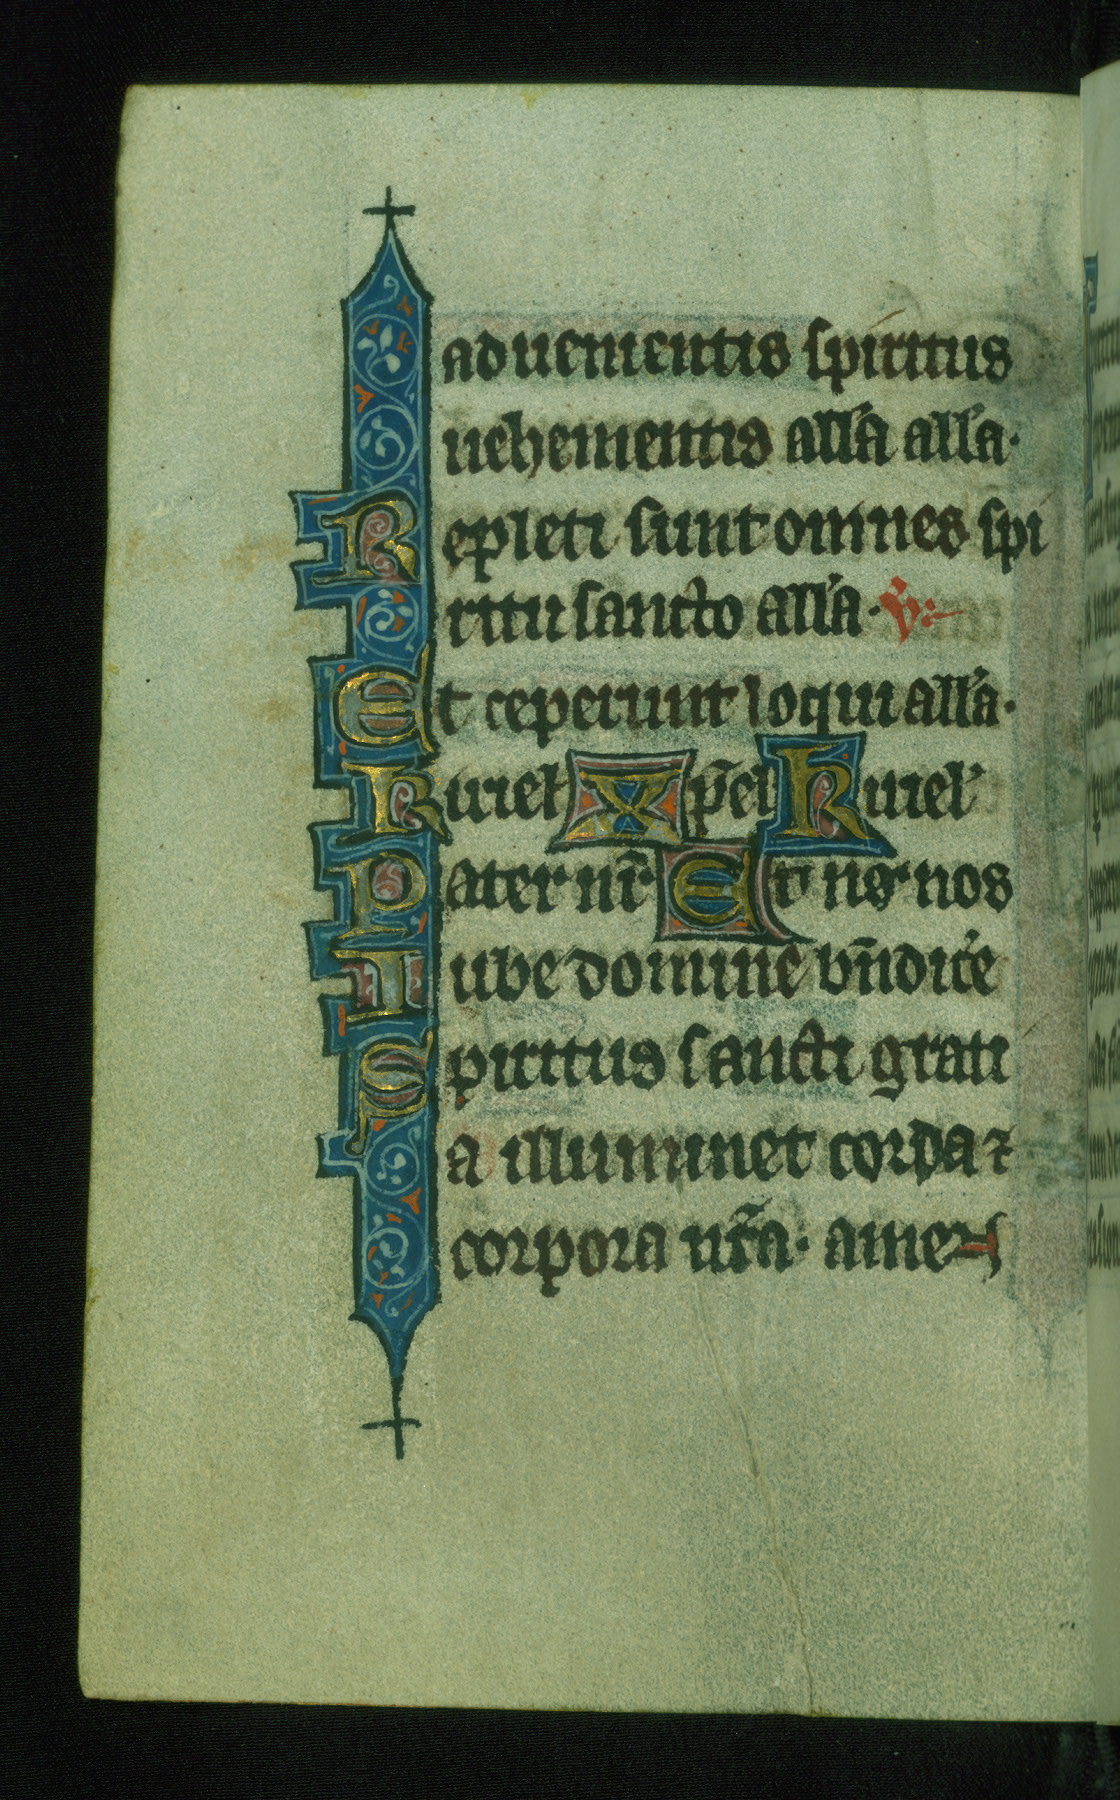 aduenientis spiritus
uehementis all'a all'a·
Repleti sunt omnes spi
ritu sancto all'a· V̾:
Et ceperunt loqui all'a·
Kiriel' Xp̄el' Kiriel'
Pater nr̄ Et ne nos
Iube domine bn̄dic'e
Spiritus sancti grati
a illuminet corda ⁊
corpora nr̄a· amen